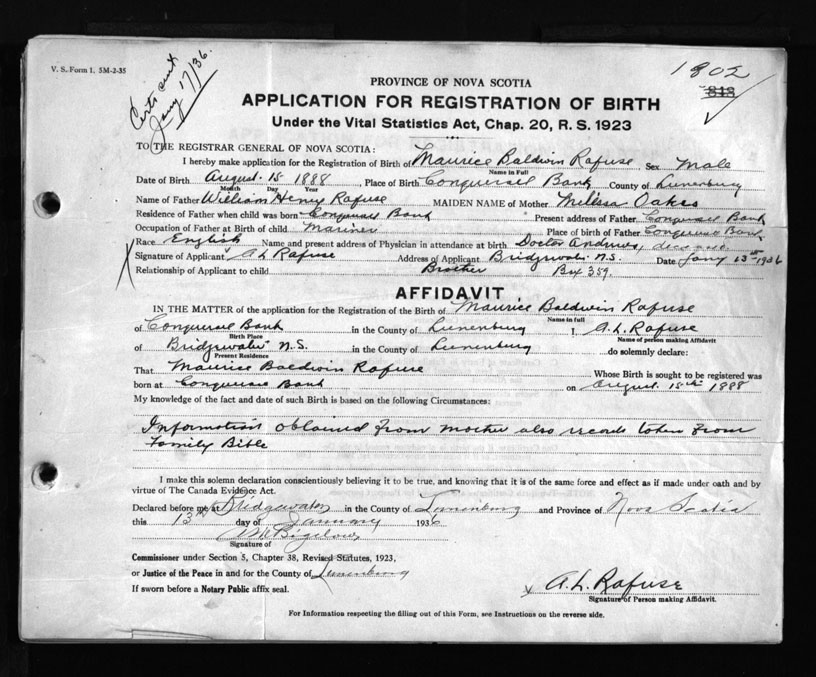 V. S. Form 1. 5M-2-35
Certs sent
Jany 17/36.
1802
818
PROVINCE OF NOVA SCOTIA
APPLICATION FOR REGISTRATION OF BIRTH
Under the Vital Statistics Act, Chap. 20, R. S. 1923
TO THE REGISTRAR GENERAL OF NOVA SCOTIA:
I hereby make application for the Registration of Birth of Maurice Baldwin Rafuse Sex Male
Name in Full
Date of Birth August 15 1888, Place of Birth Conquerall Bank County of Lunenburg
Month Day Year
Name of Father William Henry Rafuse MAIDEN NAME of Mother Melissa Oakes
Residence of Father when child was born Conquerall Bank Present address of Father Conquerall Bank
Occupation of Father at Birth of child Mariner Place of birth of Father Conquerall Bank
Race English Name and present address of Physician in attendance at birth Doctor Andrews,
Signature of Applicant A L Rafuse Address of Applicant Bridgewater N.S. Date Jany 13th 1936
Relationship of Applicant to child Brother Box 359.
AFFIDAVIT
IN THE MATTER of the application for the Registration of the Birth of Maurice Baldwin Rafuse
Name in full
of Conquerall Bank in the County of Lunenburg I A.L. Rafuse
Birth Place Name of person making Affidavit
of Bridgewater N.S. in the County of Lunenburg do solemnly declare:
Present Residence
That Maurice Baldwin Rafuse Whose Birth is sought to be registered was
born at Conquerall Bank on August 15th 1888
My knowledge of the fact and date of such Birth is based on the following Circumstances:
Information obtained from mother also records taken from
Family Bible
I make this solemn declaration conscientiously believing it to be true, and knowing that it is of the same force and effect as if made under oath and by
virtue of The Canada Evidence Act.
Declared before me at Bridgewater in the County of Lunenburg and Province of Nova Scotia
this 13th day of January 1936
Bigelow
Signature of
Commissioner under Section 5, Chapter 38, Revised Statutes, 1923,
or Justice of the Peace in and for the County of Lunenburg
If sworn before a Notary Public affix seal.
A. L. Rafuse
Signature of Person making Affidavit.
For Information respecting the filling out of this Form, see Instructions on the reverse side.